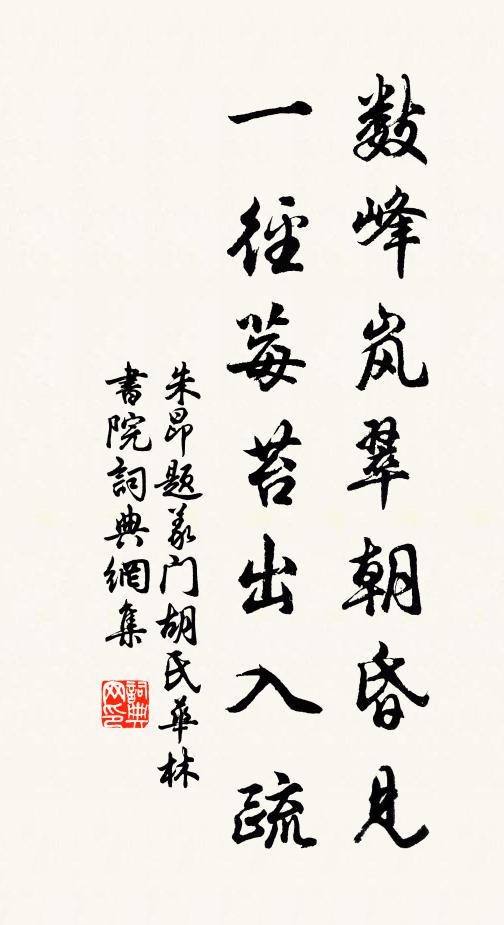 数峰岚翠朝昏見
一徑莓苔出入疏
朱昂题义门胡氏華林
書院詞典網集
詞典
网印